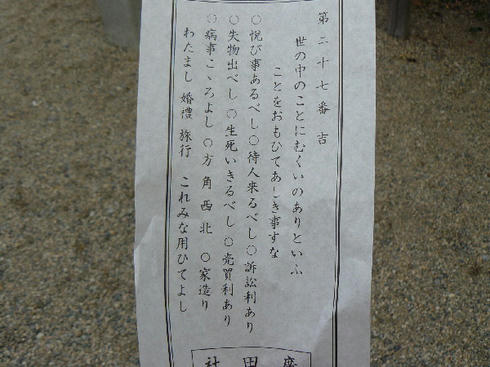 第二十七番 吉
世の中のことにむくいのありといふ
ことをおもひてあしき事すな
○悦び事あるべし○待人来るべし○訴訟利あり
○失物出べし○生死いきるべし○売買利あり
○病事こゝろよし○方角西北○家造り
わたまし 婚禮 旅行 これみな用ひてよし
社田廣